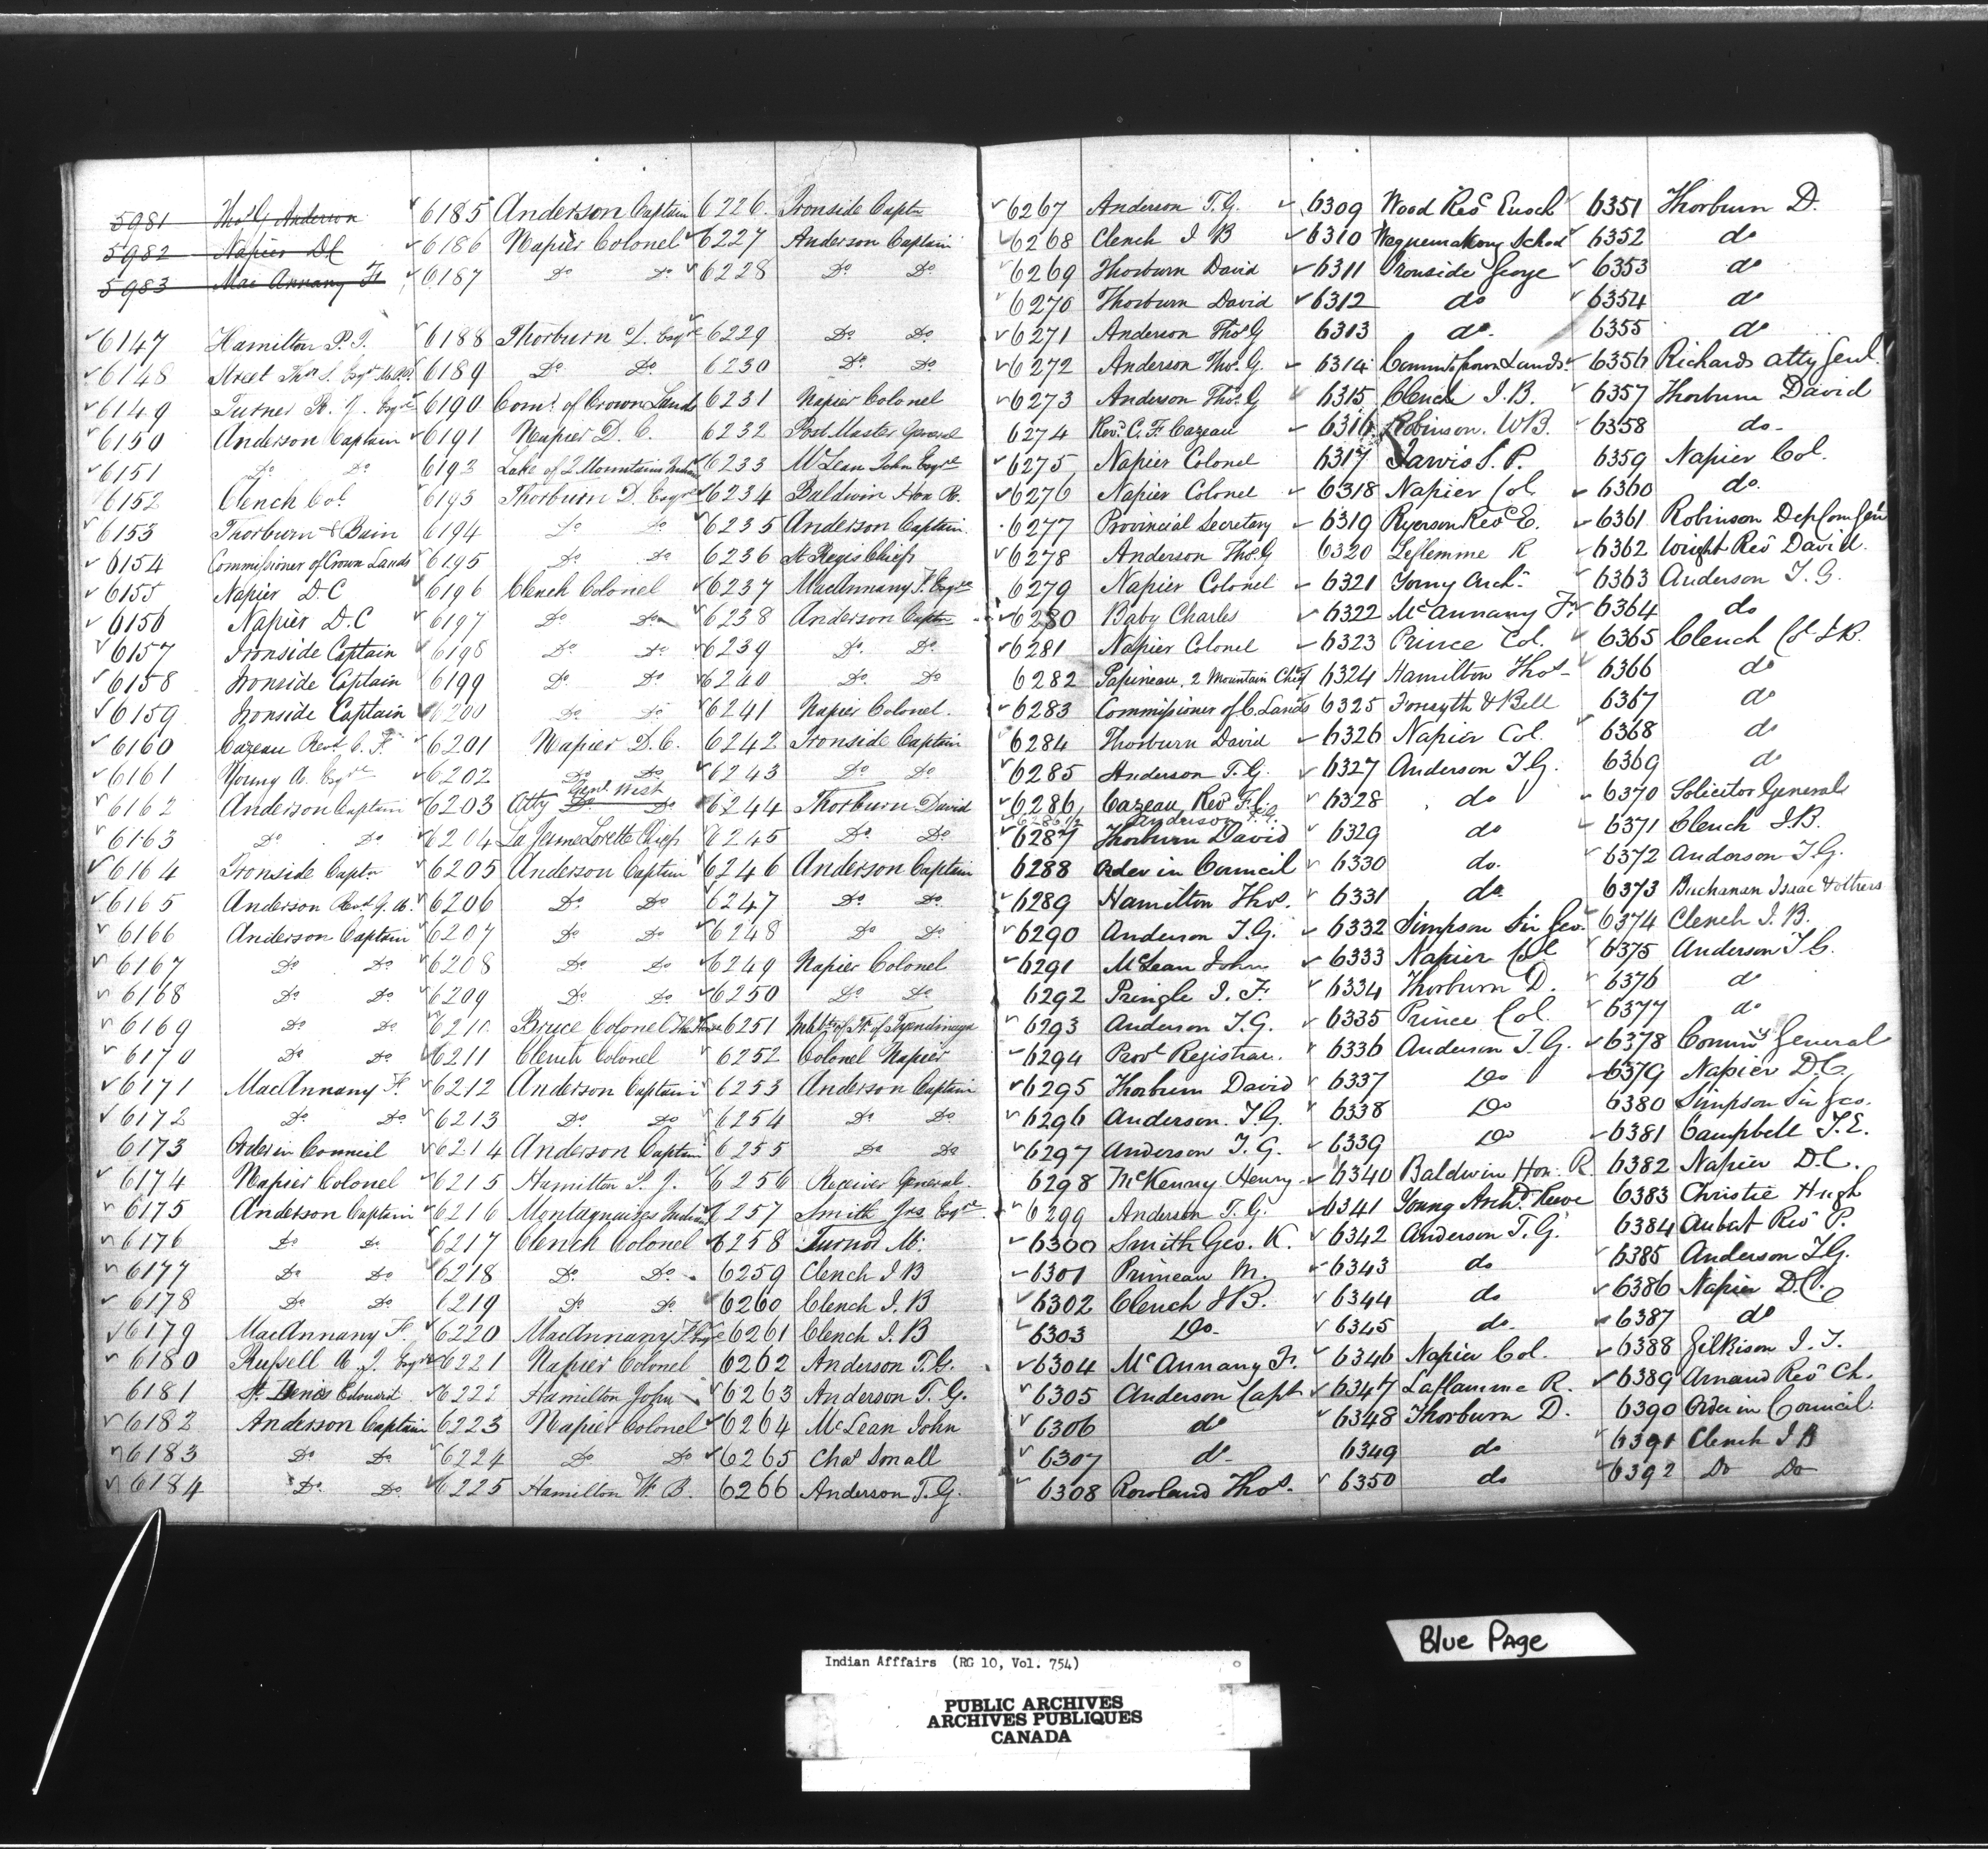 5981 Thos G Anderson
5982 Napier DC
5983 MacAnnany F
6147 Hamilton P. J.
6148 Street Thos S. Esqr
6149 Turner R. J. Esqre
6150 Anderson Captain
6151 Do Do
6152 Clench Col
6153 Thorburn & Bain
6154 Commissioner of Crown Lands
6155 Napier D.C
6156 Napier D.C
6157 Ironside Captain
6158 Ironside Captain
6159 Ironside Captain
6160 Cazeau Revd C. F.
6161 Young A. Esqre
6162 Anderson Captain
6163 Do Do
6164 Ironside Captn
6165 Anderson Revd G. A.
6166 Anderson Captain
6167 Do Do
6168 Do Do
6169 Do Do
6170 Do Do
6171 MacAnnany F.
6172 Do Do
6173 Order in Council
6174 Napier Colonel
6175 Anderson Captain
6176 Do Do
6177 Do Do
6178 Do Do
6179 MacAnnany F.
6180 Russell A. J. Esqre
6181 St. Denis Edouard
6182 Anderson Captain
6183 Do Do
6184 Do Do
6185 Anderson Captain
6186 Napier Colonel
6187 Do Do
6188 Thorburn D. Esqre
6189 Do Do
6190 Comr. of Crown Lands
6191 Napier D. C.
6192 Lake of 2 Mountains Indians
6193 Thorburn D. Esqre
6194 Do Do
6195 Do Do
6196 Clench Colonel
6197 Do Do
6198 Do Do
6199 Do Do
6200 Do Do
6201 Napier D.C.
6202 Do Do
6203 Atty Genl. West
6204 La Jeune Lorette Chiefs
6205 Anderson Captain
6206 Do Do
6207 Do Do
6208 Do Do
6209 Do Do
6210 Bruce Colonel The Honre
6211 Clench Colonel
6212 Anderson Captain
6213 Do Do
6214 Anderson Captain
6215 Hamilton P. J.
6216 Montagnaises Indians
6217 Clench Colonel
6218 Do Do
6219 Do Do
6220 MacAnnany F. Esqre
6221 Napier Colonel
6222 Hamilton John
6223 Napier Colonel
6224 Do Do
6225 Hamilton W. B.
6226 Ironside Captn
6227 Anderson Captain
6228 Do Do
6229 Do Do
6230 Do Do
6231 Napier Colonel
6232 Post Master General
6233 McLean John Esqre
6234 Baldwin Hon R.
6235 Anderson Captain
6236 St Regis Chiefs
6237 MacAnnany F. Esqre
6238 Anderson Captn
6239 Do Do
6240 Do Do
6241 Napier Colonel.
6242 Ironside Captain
6243 Do Do
6244 Thorburn David
6245 Do Do
6246 Anderson Captain
6247 Do Do
6248 Do Do
6249 Napier Colonel
6250 Do Do
6251 Inhbts of Tp. of Tyendinaga
6252 Colonel Napier
6253 Anderson Captain
6254 Do Do
6255 Do Do
6256 Receiver General.
6257 Smith Jas Esqre
6258 Turnor M.
6259 Clench I B
6260 Clench I. B
6261 Clench I. B
6262 Anderson T. G.
6263 Anderson T. G.
6264 McLean John
6265 Chas Small
6266 Anderson T. G.
6267 Anderson T. G.
6268 Clench I B
6269 Thorburn David
6270 Thorburn David
6271 Anderson Thos G
6272 Anderson Thos. G.
6273 Anderson Thos. G
6274 Revd. C. F. Cazeau
6275 Napier Colonel
6276 Napier Colonel
6277 Provincial Secretary
6278 Anderson Thos. G
6279 Napier Colonel
6280 Baby Charles
6281 Napier Colonel
6282 Papineau, 2 Mountain Chief
6283 Commissioner of C. Lands
6284 Thorburn David
6285 Anderson T. G.
6286 Cazeau Revd F. C.
6286 1/2 Anderson T. G.
6287 Thorburn David
6288 Order in Council
6289 Hamilton Thos.
6290 Anderson T. G.
6291 McLean John
6292 Pringle I. F.
6293 Anderson T. G.
6294 Provl Registrar.
6295 Thorburn David
6296 Anderson. T. G.
6297 Anderson T. G.
6298 McKenny Henry
6299 Anderson T. G.
6300 Smith Geo. K.
6301 Primeau M.
6302 Clench I B.
6303 Do
6304 McAnnany F.
6305 Anderson Capt
6306 do
6307 do
6308 Rowland Thos.
6309 Wood Revd Enoch
6310 Waquemakong School
6311 Ironside George
6312 do
6313 do.
6314 Commission Lands.
6315 Clench I. B.
6316 Robinson. W B.
6317 Jarvis S. P.
6318 Napier Col
6319 Ryerson Revd E.
6320 Leflemme R
6321 Young Archd
6322 McAnnany F
6323 Prince Col.
6324 Hamilton Thos
6325 Forsyth & Bell
6326 Napier Col.
6327 Anderson T. G.
6328 do
6329 do
6330 do.
6331 do.
6332 Simpson Sir Geo.
6333 Napier Col
6334 Thorburn D.
6335 Prince Col.
6336 Anderson T. G.
6337 Do
6338 Do
6339 Do
6340 Baldwin Hon. R
6341 Young Archd.
6342 Anderson T. G.
6343 do
6344 do
6345 do.
6346 Napier Col.
6347 Laflamme R.
6348 Thorburn D.
6349 do
6350 do
6351 Thorburn D.
6352 do
6353 do
6354 do
6355 do
6356 Richards Atty Genl.
6357 Thorburn David
6358 do-
6359 Napier Col.
6360 do.
6361 Robinson Dep Com Genl
6362 Wright Revd David
6363 Anderson T. G.
6364 do
6365 Clench Col I B.
6366 do
6367 do
6368 do
6369 do
6370 Solicitor General
6371 Clench I. B.
6372 Anderson T. G.
6373 Buchanan Isaac & others
6374 Clench I. B.
6375 Anderson T G.
6376 do
6377 do
6378 Commy General
6379 Napier D. C.
6380 Simpson Sir Geo.
6381 Campbell T. E.
6382 Napier D. C.
6383 Christie Hugh
6384 Aubert Revd P.
6385 Anderson T G.
6386 Napier D. C.
6387 do
6388 Gilkison I. T.
6389 Arnaud Revd Ch.
6390 Order in Council.
6391 Clench I B
6392 Do Do
Blue Page
Indian Afffairs (RG 10, Vol. 754)
PUBLIC ARCHIVES
ARCHIVES PUBLIQUES
CANADA